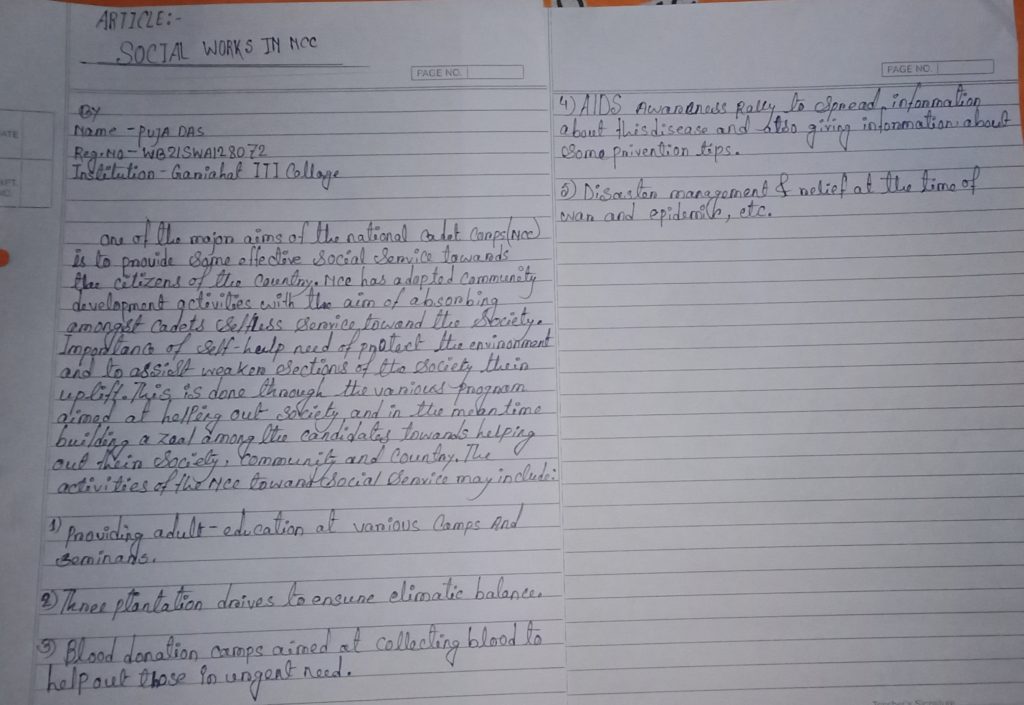 ARTICLE:-
SOCIAL WORKS IN NCC
PAGE NO.
By
Name - PUJA DAS
Reg. No - WB21SWA128072
Institution - Gariahat ITI Collage
One of the major aims of the national cadet Corps (NCC)
is to provide some effective social service towards
the citizens of the country. NCC has adopted community
development activities with the aim of absorbing
amongst cadets selfless service toward the society.
Importance of self-help need of protect the environment
and to assist weaker sections of the society their
uplift. This is done through the various program
aimed at helping out society and in the mean time
building a zeal among the candidates towards helping
out their society, community and country. The
activities of the NCC toward social service may include:
1) Providing adult-education at various camps and
seminars.
2) Three plantation drives to ensure climatic balance.
3) Blood donation camps aimed at collecting blood to
help out those in urgent need.
PAGE NO.
4) AIDS Awareness Rally to spread information
about this disease and also giving information about
some privention tips.
5) Disaster management & relief at the time of
war and epidemic, etc.